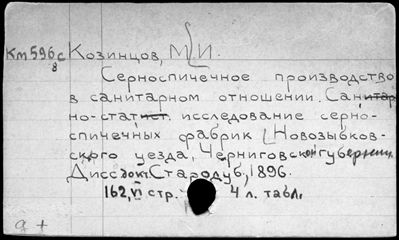 Км596с
8
Козинцов, М. И.
Серноспичечное производство
в санитарном отношении. Санитар
но-статист. исследование серно-
спичечных фабрик Новозыбков-
ского уезда, Черниговской губернии.
Дисс. докт. Стародуб, 1896.
162, VI стр. 4 л. табл.